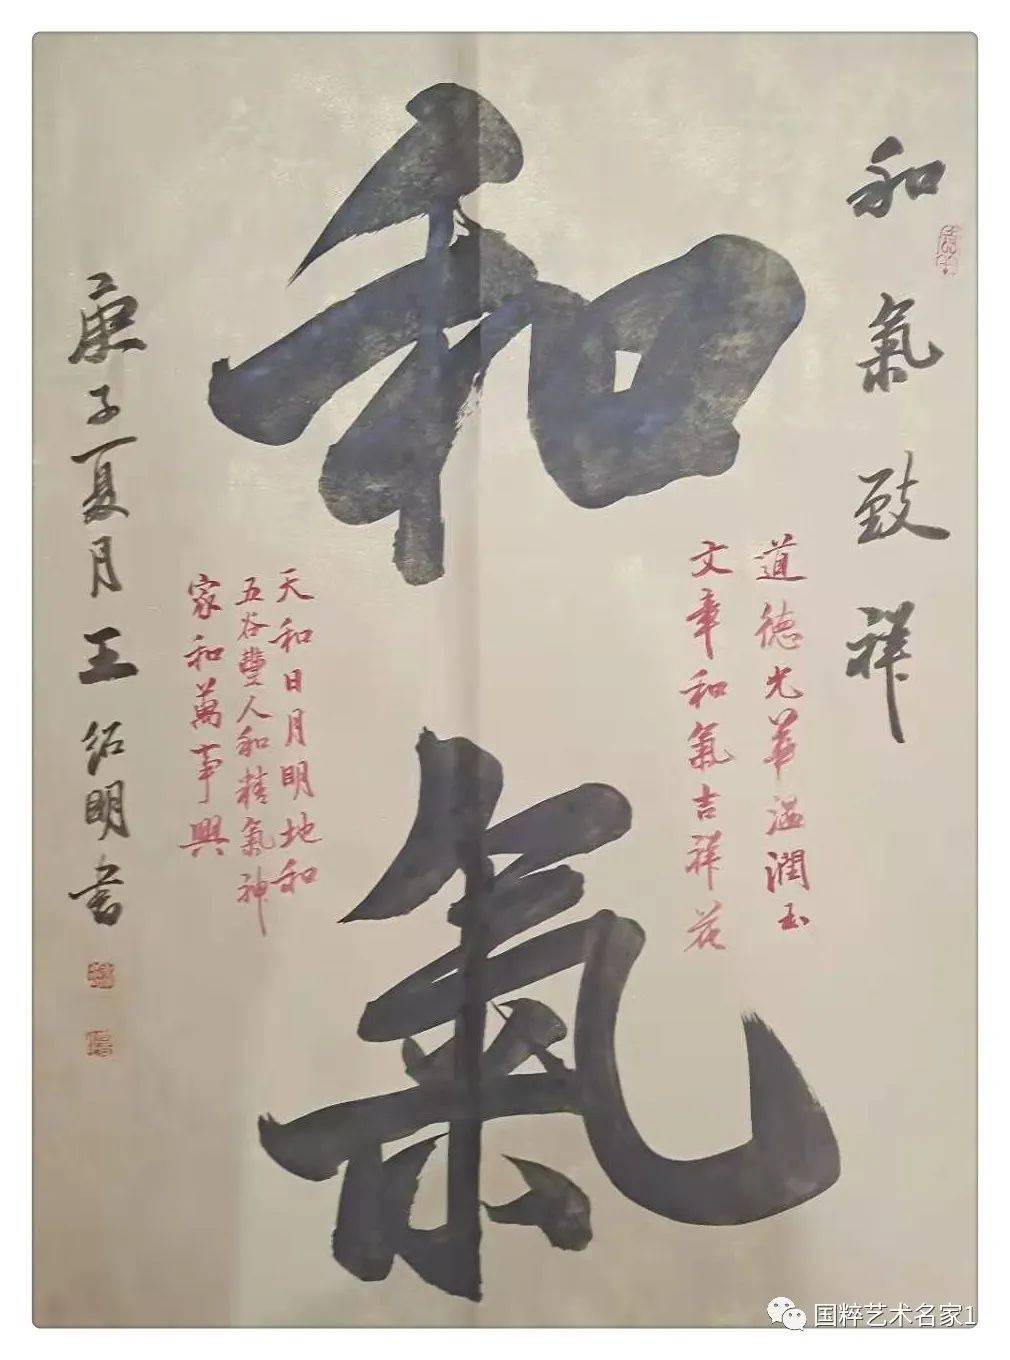 和氣致祥
道德光華温潤玉
文章和氣吉祥花
和氣
天和日月明地和
五谷豐人和精氣神
家和萬事興
庚子夏月王绍明书
国粹艺术名家1